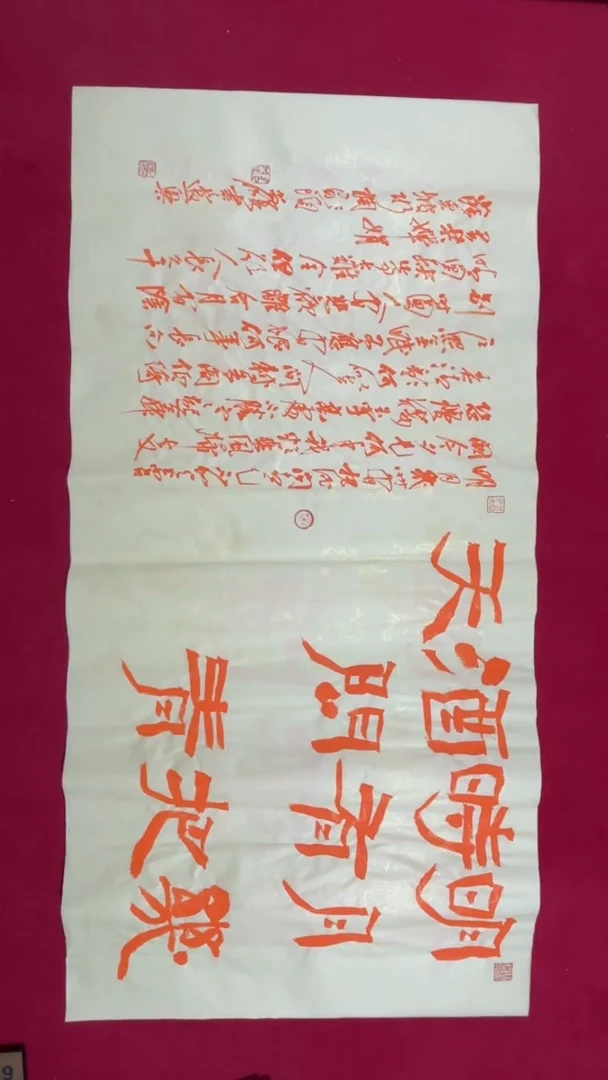 明月幾
時有把
酒問青
天
明月幾時有把酒問青天不知天上宮
闕今夕是何年我欲乘風歸去又
恐瓊樓玉宇高處不勝寒起舞
弄清影何似在人間轉朱閣低綺
戶照無眠不應有恨何事長向
別時圓人有悲歡離合月有陰
晴圓缺此事古難全但願人長久千
里共嬋娟